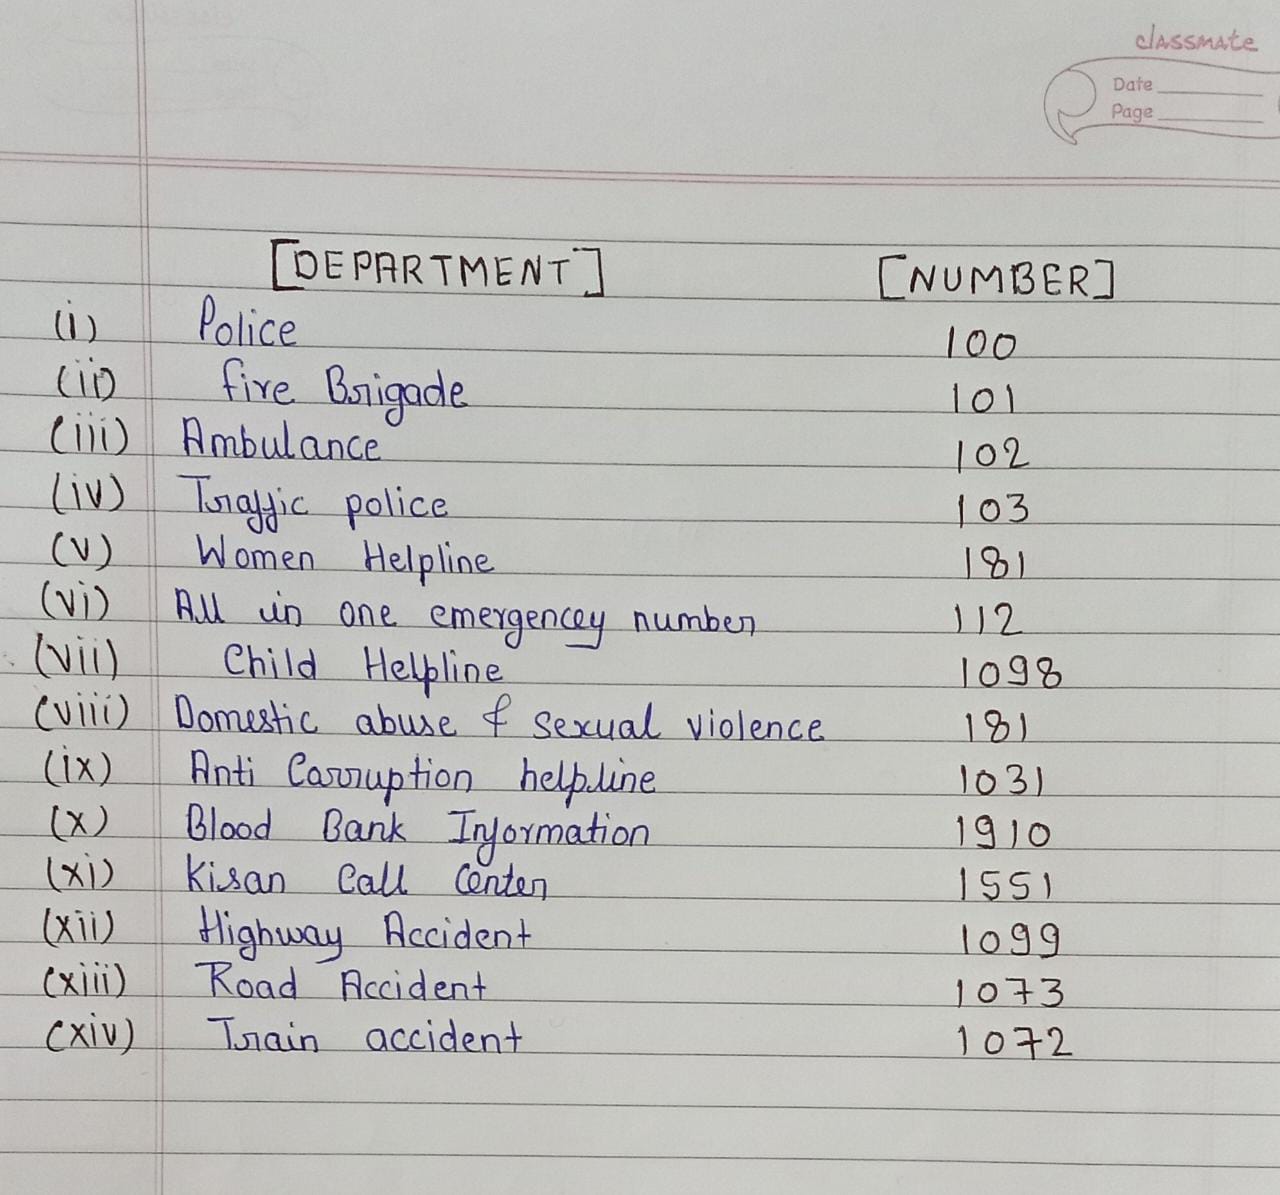 classmate
Date
Page
[DEPARTMENT] [NUMBER]
(i) Police 100
(ii) fire Brigade 101
(iii) Ambulance 102
(iv) Traffic police 103
(v) Women Helpline 181
(vi) All in one emergencey number 112
(vii) Child Helpline 1098
(viii) Domestic abuse & sexual violence 181
(ix) Anti Carruption helpline 1031
(x) Blood Bank Information 1910
(xi) Kisan Call Center 1551
(xii) Highway Accident 1099
(xiii) Road Accident 1073
(xiv) Train accident 1072